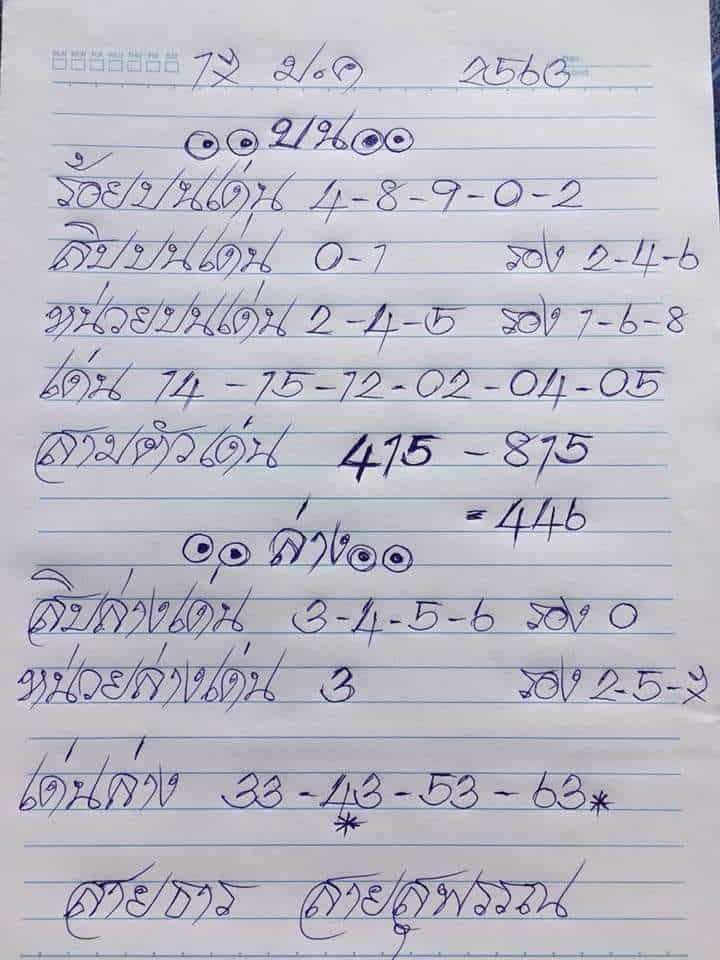 SUN MON TUE WED THU FRI SAT
17 ม.ค 2563
บน
ร้อยบนเด่น 4-8-9-0-2
สิบบนเด่น 0-1 รอง 2-4-6
หน่วยบนเด่น 2-4-5 รอง 1-6-8
เด่น 14-15-12-02-04-05
สามตัวเด่น 415-815
=446
ล่าง
สิบล่างเด่น 3-4-5-6 รอง 0
หน่วยล่างเด่น 3 รอง 2-5-7
เด่นล่าง 33-43-53-63*
*
สายธาร สายสุพรรณ